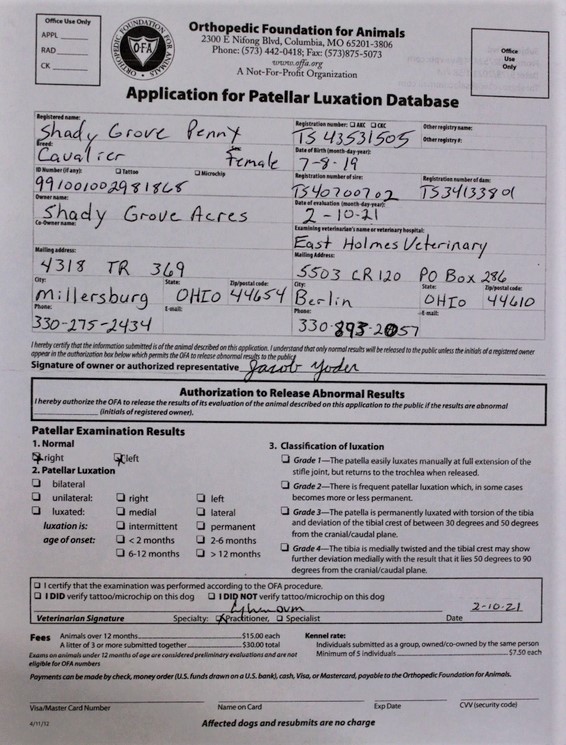 Office Use Only
APPL
RAD
CK
ORTHOPEDIC FOUNDATION FOR ANIMALS
OFA
Orthopedic Foundation for Animals
2300 E Nifong Blvd, Columbia, MO 65201-3806
Phone: (573) 442-0418; Fax: (573)875-5073
www.offa.org
A Not-For-Profit Organization
Office Use Only
Application for Patellar Luxation Database
Registered name: Shady Grove Penny
Registration number: ☐ AKC ☐ CKC TS 43531505
Other registry name:
Other registry #:
Breed: Cavalier Sex: Female
Date of Birth (month-day-year): 7-8-19
ID Number (if any): ☐ Tattoo ☐ Microchip 991001002981868
Registration number of sire: TS40700702
Registration number of dam: TS34133801
Owner name: Shady Grove Acres
Date of evaluation (month-day-year): 2-10-21
Co-Owner name:
Examining veterinarian's name or veterinary hospital: East Holmes Veterinary
Mailing address: 4318 TR 369
Mailing Address: 5503 CR 120 PO Box 286
City: Millersburg State: OHIO Zip/postal code: 44654
City: Berlin State: OHIO Zip/postal code: 44610
Phone: 330-275-2434 E-mail:
Phone: 330-893-2057 E-mail:
I hereby certify that the information submitted is of the animal described on this application. I understand that only normal results will be released to the public unless the initials of a registered owner
appear in the authorization box below which permits the OFA to release abnormal results to the public.
Signature of owner or authorized representative Jacob Yoder
Authorization to Release Abnormal Results
I hereby authorize the OFA to release the results of its evaluation of the animal described on this application to the public if the results are abnormal
(initials of registered owner).
Patellar Examination Results
1. Normal
☒ right ☒ left
2. Patellar Luxation
☐ bilateral
☐ unilateral: ☐ right ☐ left
☐ luxated: ☐ medial ☐ lateral
luxation is: ☐ intermittent ☐ permanent
age of onset: ☐ < 2 months ☐ 2-6 months
☐ 6-12 months ☐ > 12 months
3. Classification of luxation
☐ Grade 1—The patella easily luxates manually at full extension of the
stifle joint, but returns to the trochlea when released.
☐ Grade 2—There is frequent patellar luxation which, in some cases
becomes more or less permanent.
☐ Grade 3—The patella is permanently luxated with torsion of the tibia
and deviation of the tibial crest of between 30 degrees and 50 degrees
from the cranial/caudal plane.
☐ Grade 4—The tibia is medially twisted and the tibial crest may show
further deviation medially with the result that it lies 50 degrees to 90
degrees from the cranial/caudal plane.
☐ I certify that the examination was performed according to the OFA procedure.
☐ I DID verify tattoo/microchip on this dog ☐ I DID NOT verify tattoo/microchip on this dog
2-10-21
Veterinarian Signature Specialty: ☒ Practitioner, ☐ Specialist Date
Fees Animals over 12 months $15.00 each
A litter of 3 or more submitted together $30.00 total
Exams on animals under 12 months of age are considered preliminary evaluations and are not
eligible for OFA numbers
Kennel rate:
Individuals submitted as a group, owned/co-owned by the same person
Minimum of 5 individuals $7.50 each
Payments can be made by check, money order (U.S. funds drawn on a U.S. bank), cash, Visa, or Mastercard, payable to the Orthopedic Foundation for Animals.
Visa/Master Card Number Name on Card Exp Date CVV (security code)
4/11/12
Affected dogs and resubmits are no charge